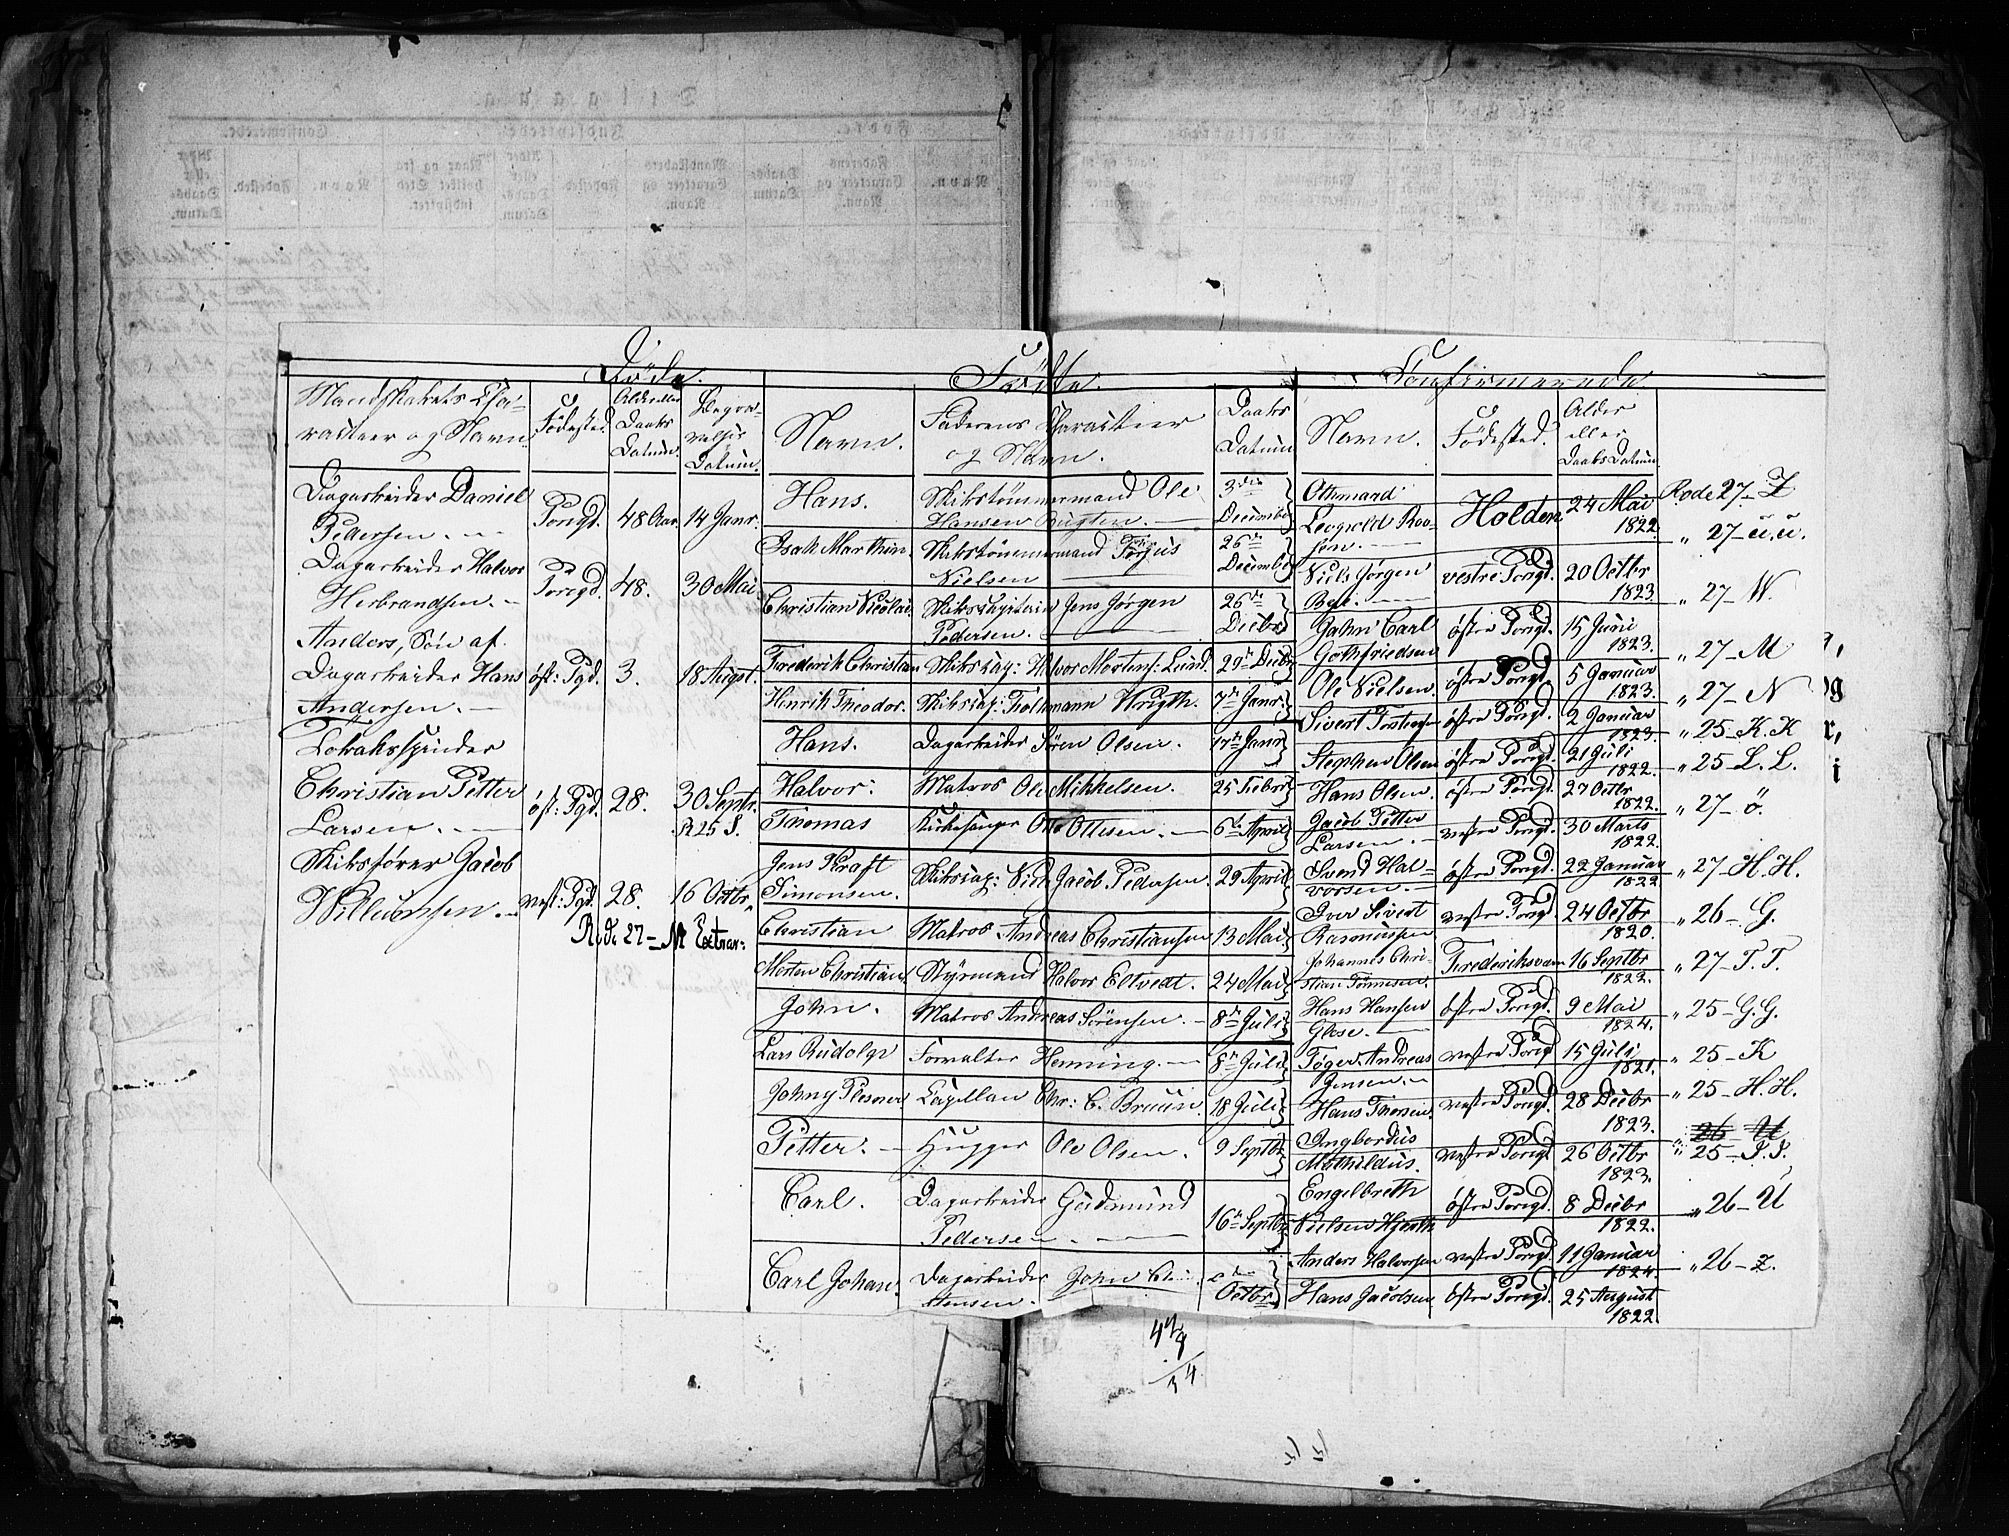 Döde.
Mandskabets Cha-
racteer og Navn
Födested.
Alder eller
Daabs
Datum.
Begra-
velses
Datum.
Dagarbeider Daniel
Pedersen. Porsgd. 48 Aar. 14 Janr.
Dagarbeider Halvor
Herbrandsen. Porsgd. 48. 30 Mai.
Anders, Sön af
Dagarbeider Hans öst: Pgd. 3. 18 Augst.
Andersen.
Christian Petter
Larsen. öst: Pgd. 28. 30 Septr.
R 25 S.
Skibsförer Jacob
Willumsen. vest: Pgd. 28. 16 Octbr.
Rode 27 – M Extrar:
Födte.
Navn.
Faderens Character
og Navn.
Daabs
Datum
Hans. Skibstömmermand Ole
Hansen Bugten. 3die
December
Isak Marthin. Skibstömmermand Torgus
Nielsen 26de
December
Christian Nicolai. Jens Jörgen
Pedersen. 26de
Decbr
Frederik Christian Skibscap: Halvor Mortens: Lund. 29de Decbr
Henrik Theodor. Skibscap: Wrigth. 7de Janr.
Hans. Dagarbeider Sören Olsen. 17de Janr
Halvor. Matros Ole Mikkelsen. 25 Febr
Thomas Kirkesanger Ole Ottesen. 6te April
Jens Kraft
Simonsen. Skibscap: Jacob Pedersen. 29 April
Christian Matros Andreas Christiansen 13 Mai
Morten Christian Styrmand Halvor Eltvedt. 24 Mai
John. Matros Andreas Sörensen. 8de Juli
Lars Rudolph Forvalter Henning. 8de Juli
Johny Plesner Capellan Chr: C. Bruun. 18 Juli
Petter. Hugger Ole Olsen. 9 Septbr
Carl. Dagarbeider Gudmund
Pedersen. 16de Septbr
Carl Johan. Dagarbeider John
stensen. Octbr
Confirmerede
Navn.
Födested.
Alder
eller
Daabs Datum.
Othmard
Leopold Roo-
sen. Holden 24 Mai
1822. Rode 27 – Z
Niels Jörgen
vestre Porsgd. 20 Octbr
1823. " 27 – ü.ü.
Jahn Carl
Gothfriedsen östre Porsgd. 15 Juni
1823. " 27 – W.
Ole Nielsen. östre Porsgd. 5 Januar
1823. " 27 – M
Sivert östre Porsgd. 2 Januar
1823. " 27 – N
Stephen Olsen östre Porsgd. 21 Juli
1822. " 25 – K. K
Hans Olsen. östre Porsgd. 27 Octbr
1822. " 25 – L. L.
Jacob Petter
Larsen. vestre Porsgd. 30 Marts
1822. " 27 – ö.
Svend Hal-
vorsen. östre Porsgd. 22 Januar
1822 " 27 – H. H.
Iver Sivert
Rasmussen vestre Porsgd 24 Octbr
1820. " 26 – G.
Johannes Chri-
stian Tönnesen. Frederiksværn 16 Septbr
1822. " 27 – T. T.
Hans Hansen
östre Porsgd. 9 Mai
1824. " 25 – G. G.
Töger Andreas
Jensen. vestre Porsgd 15 Juli
1821. " 25 – K
Hans Thorsen. vestre Porsgd. 28 Decbr
1823. " 25 – H. H.
Ingbordus
Mathildus. vestre Porsgd 26 Octbr
1823. " 25 – I. I.
Engelbreth
Nielsen Hjerth östre Porsgd. 8 Decbr
1822. " 26 – U
Anders Halvorsen vestre Porsgd. 11 Januar
1824. " 26 – Z.
Hans Jacobsen östre Porsgd. 25 August
1822.